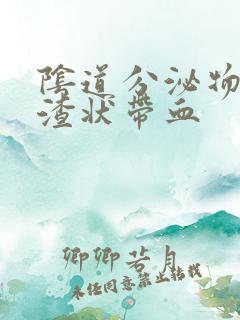 陰道分泌物
渣狀帶血
卿卿若月
未经同意禁止转载